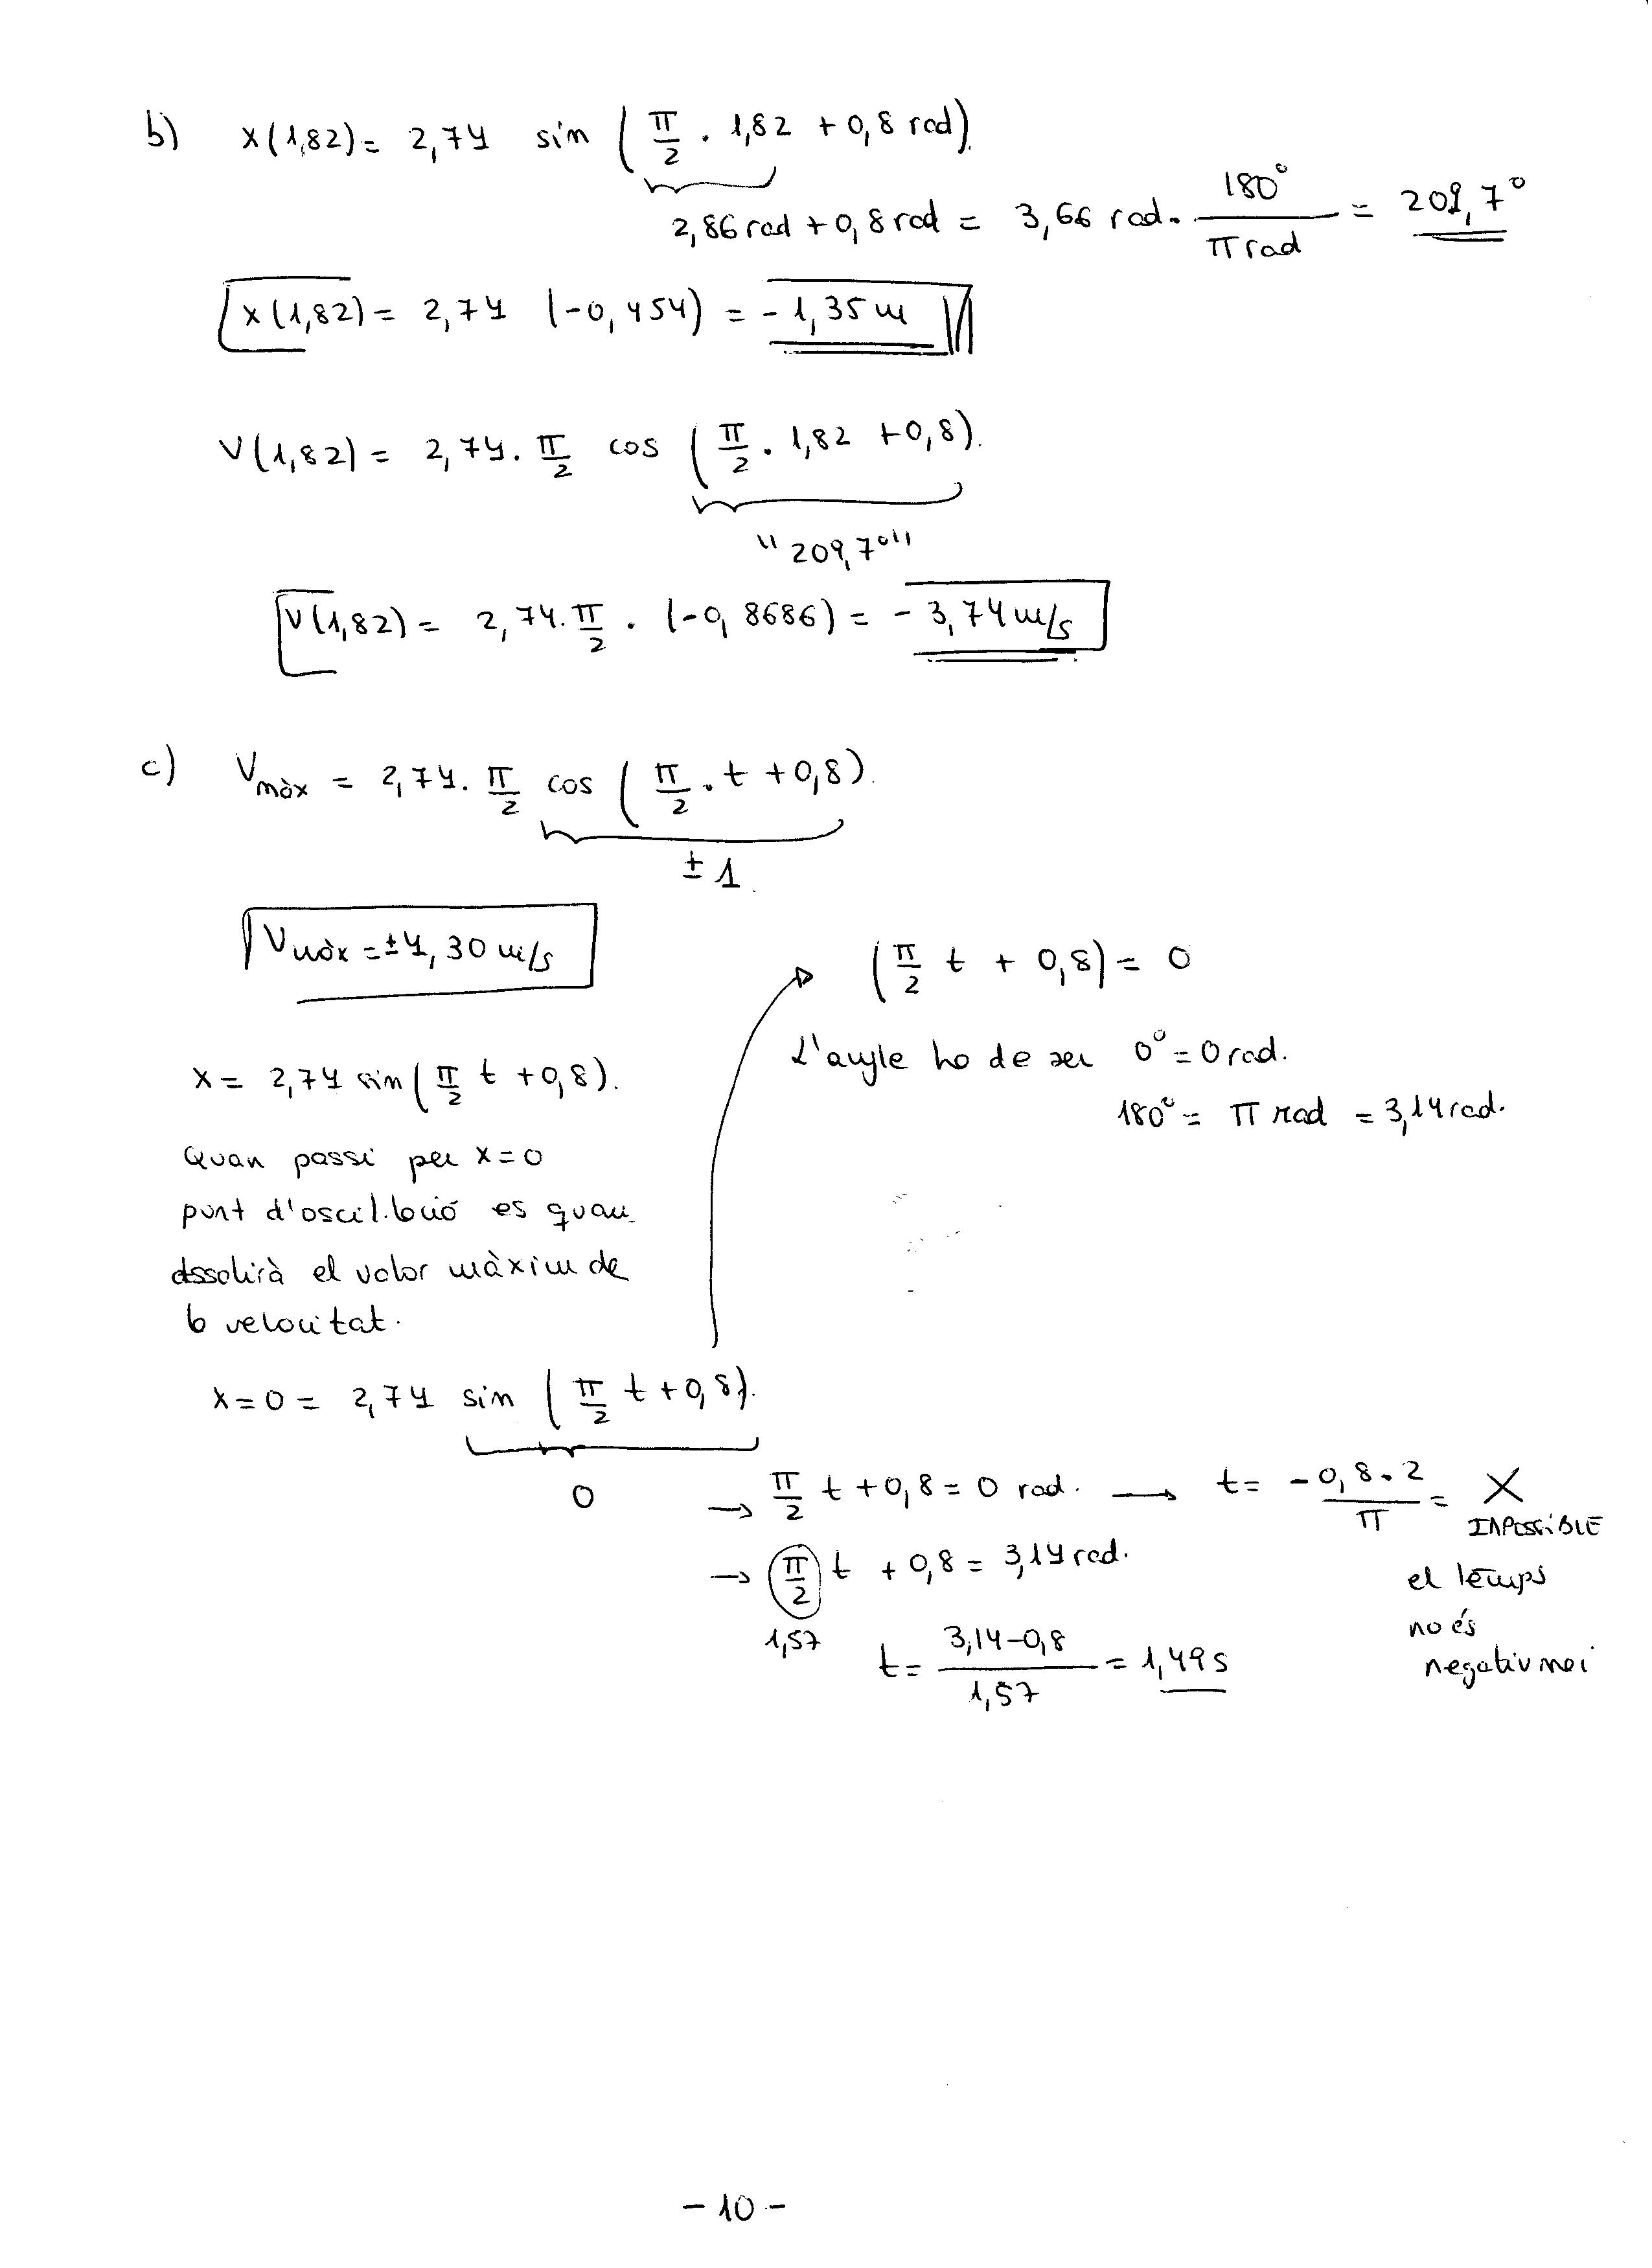 b) x(1,82) = 2,74 sin (π/2 · 1,82 + 0,8 rad).
2,86 rad + 0,8 rad = 3,66 rad · 180°/π rad = 209,7°
x(1,82) = 2,74 (-0,454) = -1,35 m
v(1,82) = 2,74 · π/2 cos (π/2 · 1,82 + 0,8).
"209,7°"
v(1,82) = 2,74 · π/2 · (-0,8686) = -3,74 m/s
c) Vmàx = 2,74 · π/2 cos (π/2 · t + 0,8).
± 1
Vmàx = ±4,30 m/s
(π/2 t + 0,8) = 0
L'angle ha de ser 0° = 0 rad.
180° = π rad = 3,14 rad.
x = 2,74 sin (π/2 t + 0,8).
Quan passi per x = 0
punt d'oscil·lació es quan
assolirà el valor màxim de
la velocitat.
x = 0 = 2,74 sin (π/2 t + 0,8).
0
→ π/2 t + 0,8 = 0 rad. → t = -0,8 · 2/π = X
IMPOSSIBLE
el temps
no és
negatiu mai
→ π/2 t + 0,8 = 3,14 rad.
1,57
t = 3,14 - 0,8/1,57 = 1,49 s
- 10 -